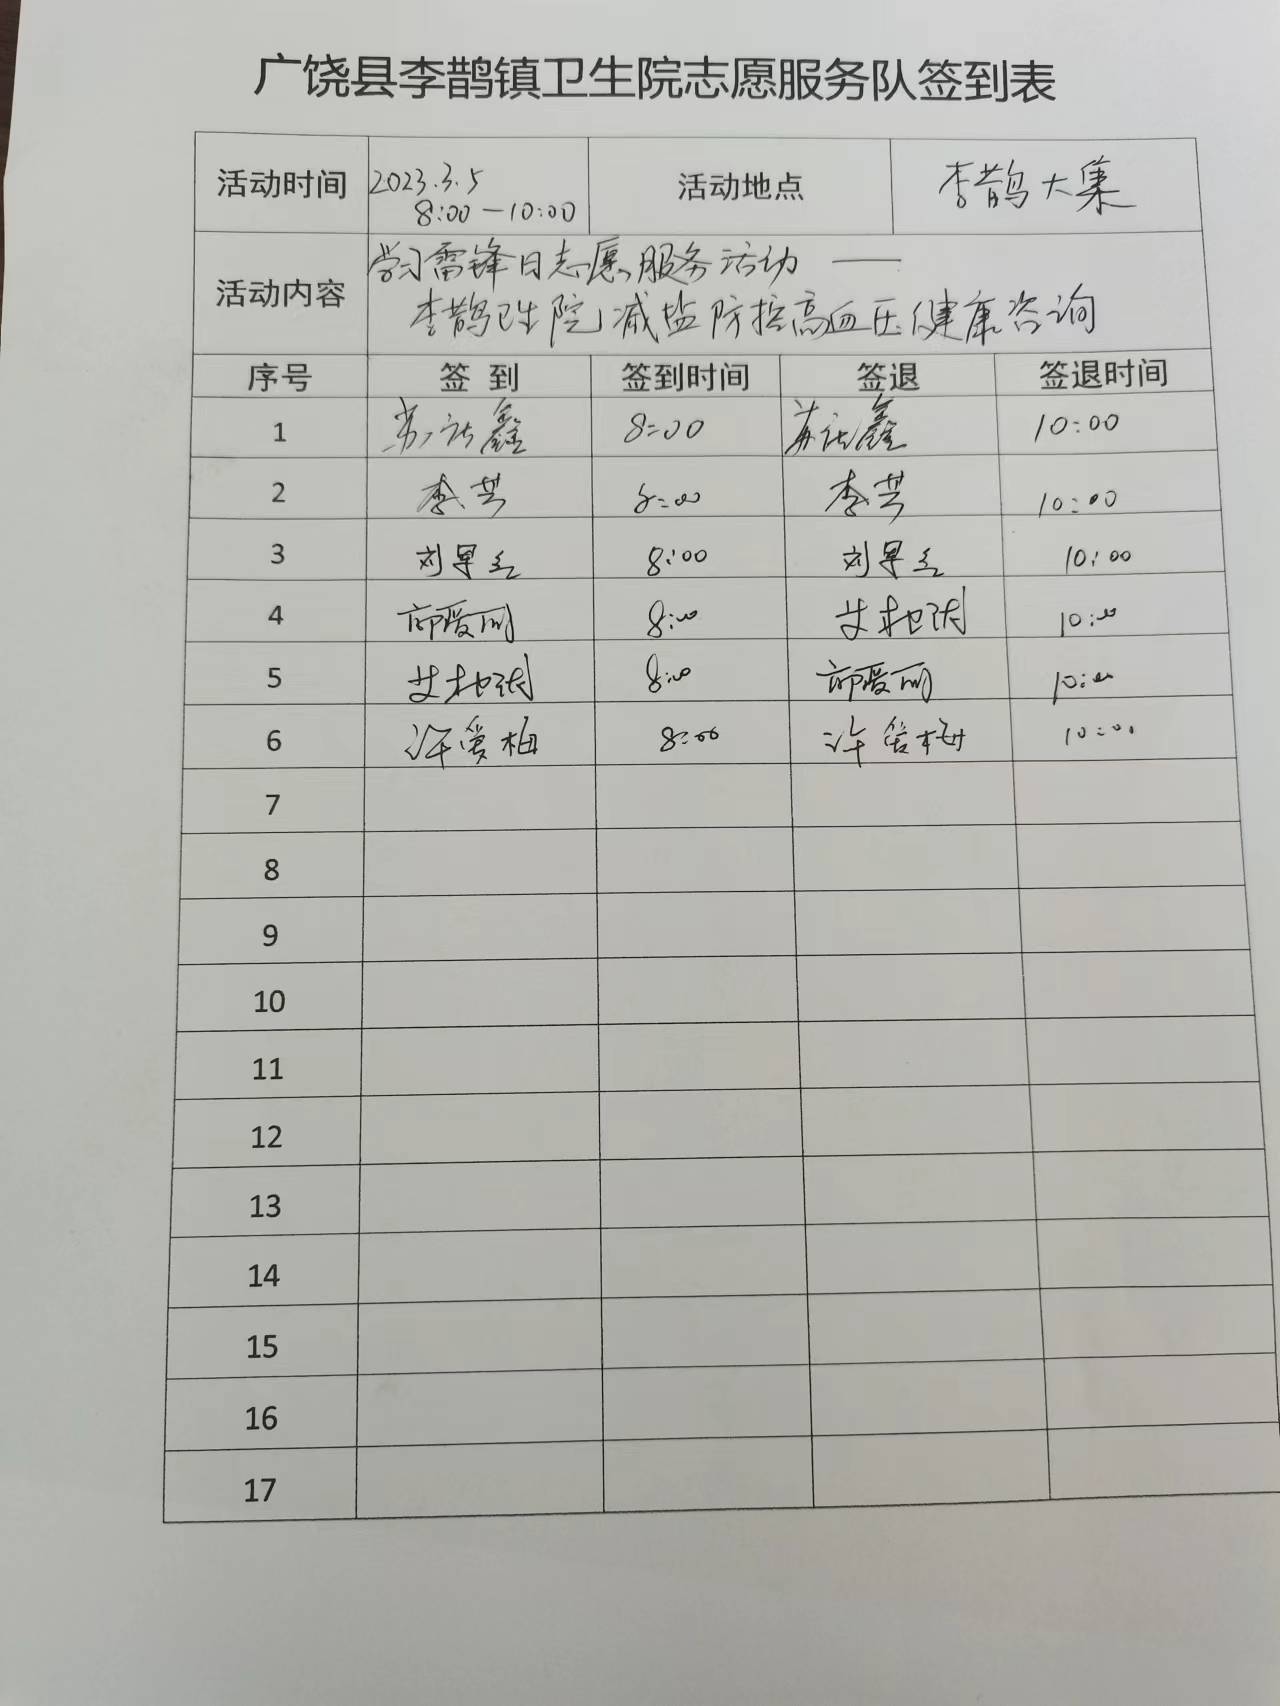 广饶县李鹊镇卫生院志愿服务队签到表
活动时间 2023.3.5 8:00—10:00 活动地点 李鹊大集
活动内容 学习雷锋日志愿服务活动——
李鹊卫生院减盐防控高血压健康咨询
序号 签到 签到时间 签退 签退时间
1 鑫 8:00 鑫 10:00
2 李芸 8:00 李芸 10:00
3 刘早 8:00 刘早 10:00
4 爱丽 8:00 艾 10:00
5 艾 8:00 爱丽 10:00
6 许爱梅 8:00 许爱梅 10:00
7
8
9
10
11
12
13
14
15
16
17